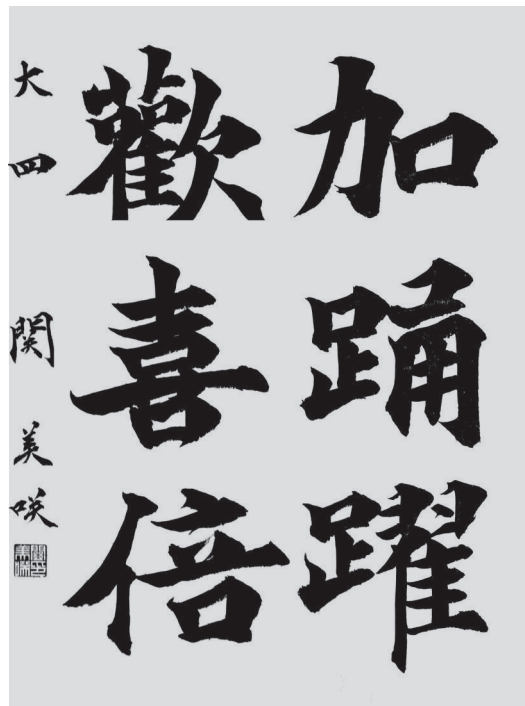 加踊躍
歡喜倍
大四 関美咲